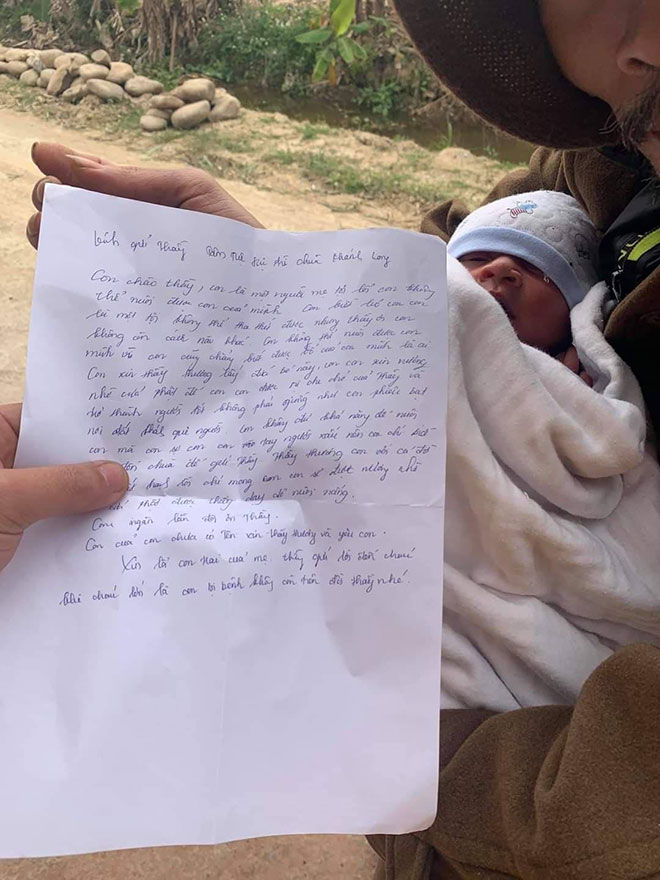 kính quý thầy trú trì chùa Khánh Long
Con chào thầy, con là một người mẹ tồi, con không
thể nuôi được con của mình. Con biết bỏ con con
là một tội không thể tha thứ được nhưng thầy ơi con
không còn cách nào khác. Con không thể nuôi được con
mình vì con cũng chẳng biết được bố của con mình là ai
Con xin thầy thương lấy đứa bé này, con con xin nương
nhờ cửa phật để con con được sự che chở của thầy và
trở thành người tốt không phải giống như con phiêu bạt
nơi đất khách quê người. Con không đủ khả năng để nuôi
con mà con sợ con con vào tay người xấu nên con chỉ biết
chùa để gửi thầy thầy thương con với cả đời
chỉ mong con con sẽ được nương nhờ
phật được thầy dạy dỗ nuôi nấng.
Con ngàn lần đội ơn thầy.
Con của con chưa có tên xin thầy thương và yêu con.
Xin lỗi con trai của mẹ, thầy gửi lời đến cháu
khi cháu lớn là con bị bệnh không còn trên đời thầy nhé.